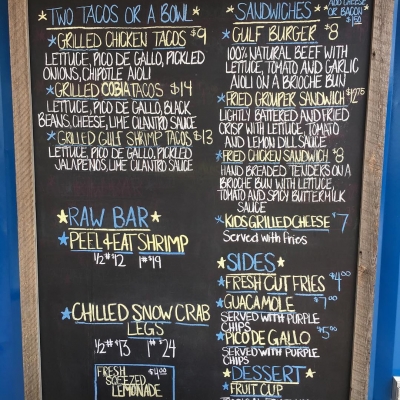 TWO TACOS OR A BOWL
GRILLED CHICKEN TACOS $9
LETTUCE, PICO DE GALLO, PICKLED
ONIONS, CHIPOTLE AIOLI
GRILLED COBIA TACOS $14
LETTUCE, PICO DE GALLO, BLACK
BEANS, CHEESE, LIME CILANTRO SAUCE
GRILLED GULF SHRIMP TACOS $13
LETTUCE, PICO DE GALLO, PICKLED
JALAPENOS, LIME CILANTRO SAUCE
RAW BAR
PEEL & EAT SHRIMP
1/2# $12 1# $19
CHILLED SNOW CRAB
LEGS
1/2# $13 1# $24
FRESH $4.00
SQEEZED
LEMONADE
SANDWICHES
ADD CHEESE
OR BACON
$1.50
GULF BURGER $8
100% NATURAL BEEF WITH
LETTUCE, TOMATO AND GARLIC
AIOLI ON A BRIOCHE BUN
FRIED GROUPER SANDWICH $12.75
LIGHTLY BATTERED AND FRIED
CRISP WITH LETTUCE, TOMATO
AND LEMON DILL SAUCE
FRIED CHICKEN SANDWICH $8
HAND BREADED TENDERS ON A
BRIOCHE BUN WITH LETTUCE,
TOMATO AND SPICY BUTTERMILK
SAUCE
KIDS GRILLED CHEESE $7
Served with fries
SIDES
FRESH CUT FRIES $4.00
GUACAMOLE $7.00
SERVED WITH PURPLE
CHIPS
PICO DE GALLO $5.00
SERVED WITH PURPLE
CHIPS
DESSERT
FRUIT CUP